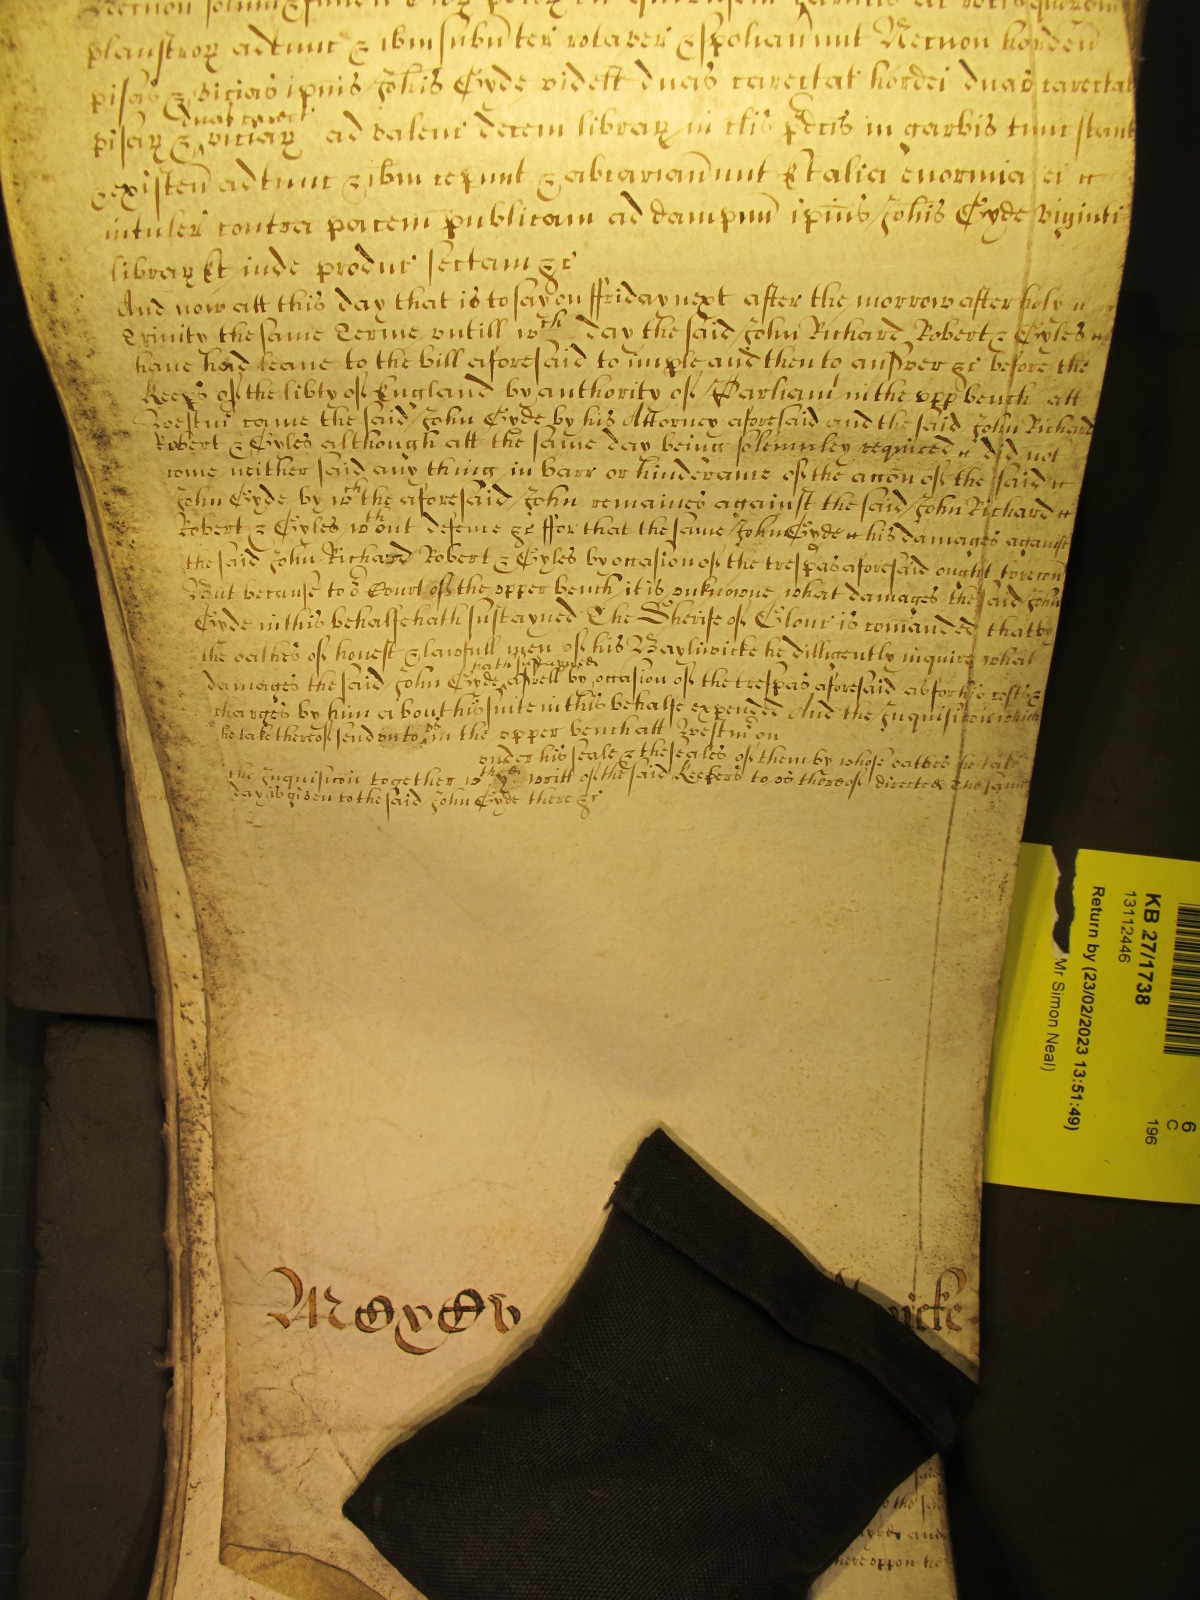 Necnon solum & funden
plaustroꝝ adtunc & ibm subvˀter rotaver & spoliaverunt Necnon hordeu
pisas & vicias ipius Johis Gyde videlt duas carectat hordei duas carectat
duas carect
pisaꝝ & viciaꝝ ad valenc decem libraꝝ in clis pdcis in garbis tunc stant
& existen adtunc & ibm ceperunt & abcariaverunt Et alia enormia ei
intuler contra pacem publicam ad dampnu ipius Johis Gyde viginti
libraꝝ Et inde produc sectam &c
And now att this day that is to say on ffriday next after the morrow after holy
Trinity the same Terme untill wth day the said John Richard Robert & Gyles
have had leave to the bill aforesaid to imple and then to answer &c before the
Keeps of the libty of England by authority of Parliamt in the upp bench att
Westmr came the said John Gyde by his Attorney aforesaid and the said John Richard
Robert & Gyles although att the same day being solemnley required did not
come neither said any thing in barr or hinderance of the accon of the said
John Gyde by wch the aforesaid John remaines against the said John Richard
Robert & Gyles wthout defence &c ffor that the same John Gyde his damages against
the said John Richard Robert & Gyles by occasion of the trespas aforesaid ought to recou
But because to ye Court of the upper bench it is unknowne what damages the said John
Gyde in this behalfe hath sustayned The Sherife of Glouc is comanded that by
the oathes of honest & lawfull men of his Bayliwicke he dilligently inquire what
hath sustayned
damages the said John Gyde aswell by occasion of the trespas aforesaid as for his costs &
charges by him about his suite in this behalfe expended And the Inquisicon which
he take thereof send unto us in the upper bench att Westmr on
under his seale & the seales of them by whose oathes he take
the Inquisicon together wth ye writt of the said Keepers to us thereof directed The same
day is given to the said John Gyde there &c
MCxCv wicke
said
to the said
and
hereoppon he
KB 27/1738
13112446
Return by (23/02/2023 13:51:49)
Mr Simon Neal)
6
C
196